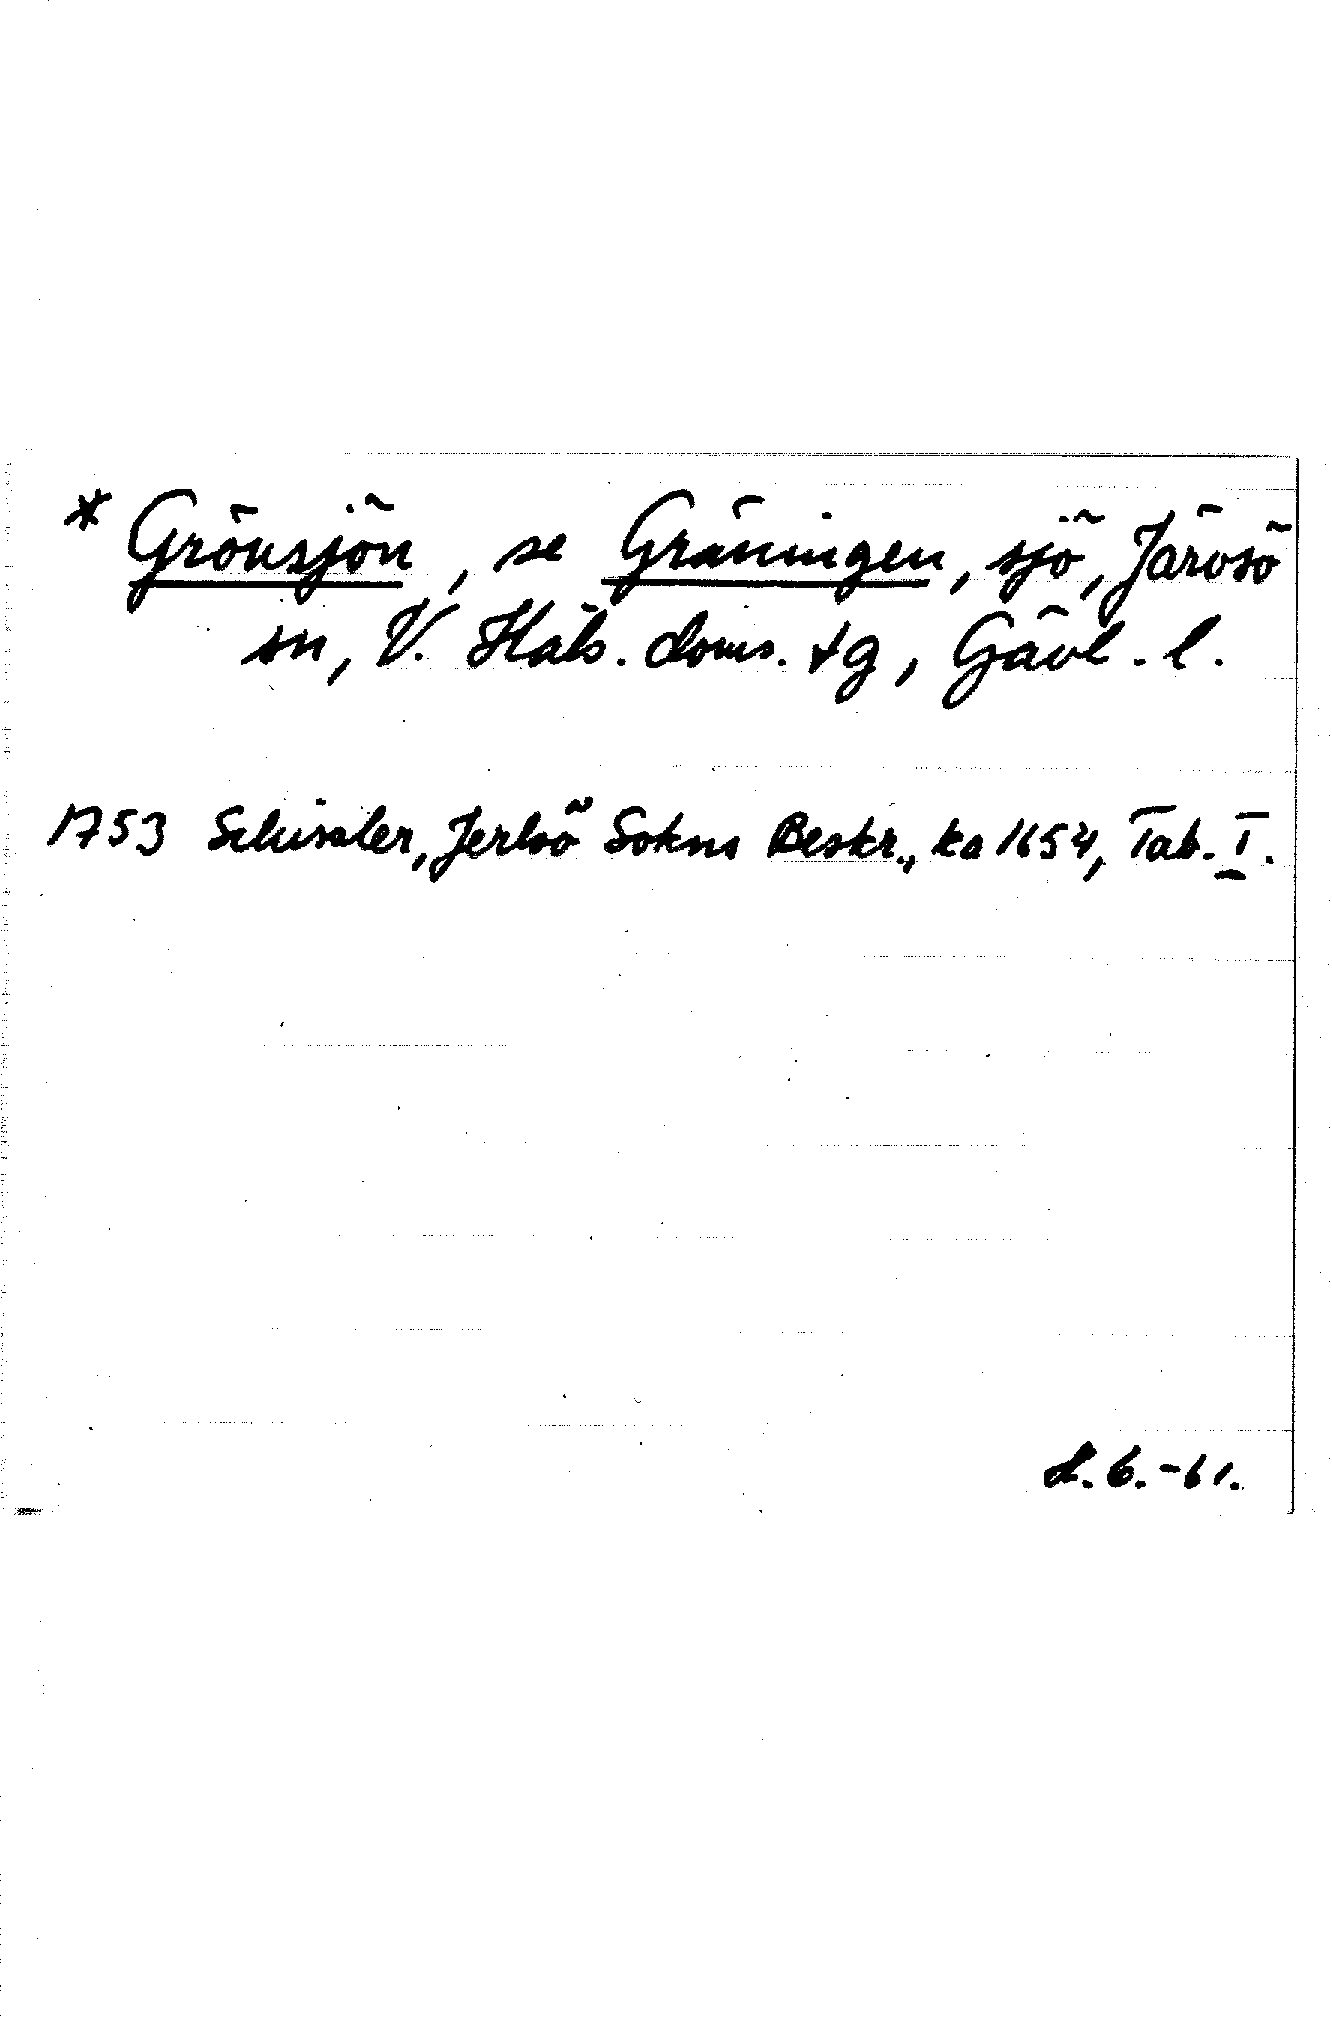 * Grönsjön, se Gräningen, sjö, Järvsö
sn, V. Häls. doms. tg, Gävl. l.
1753 Schissler, Jerlsö Sokns Beskr., ka 1654, Tab. I.
L. 6. -61.